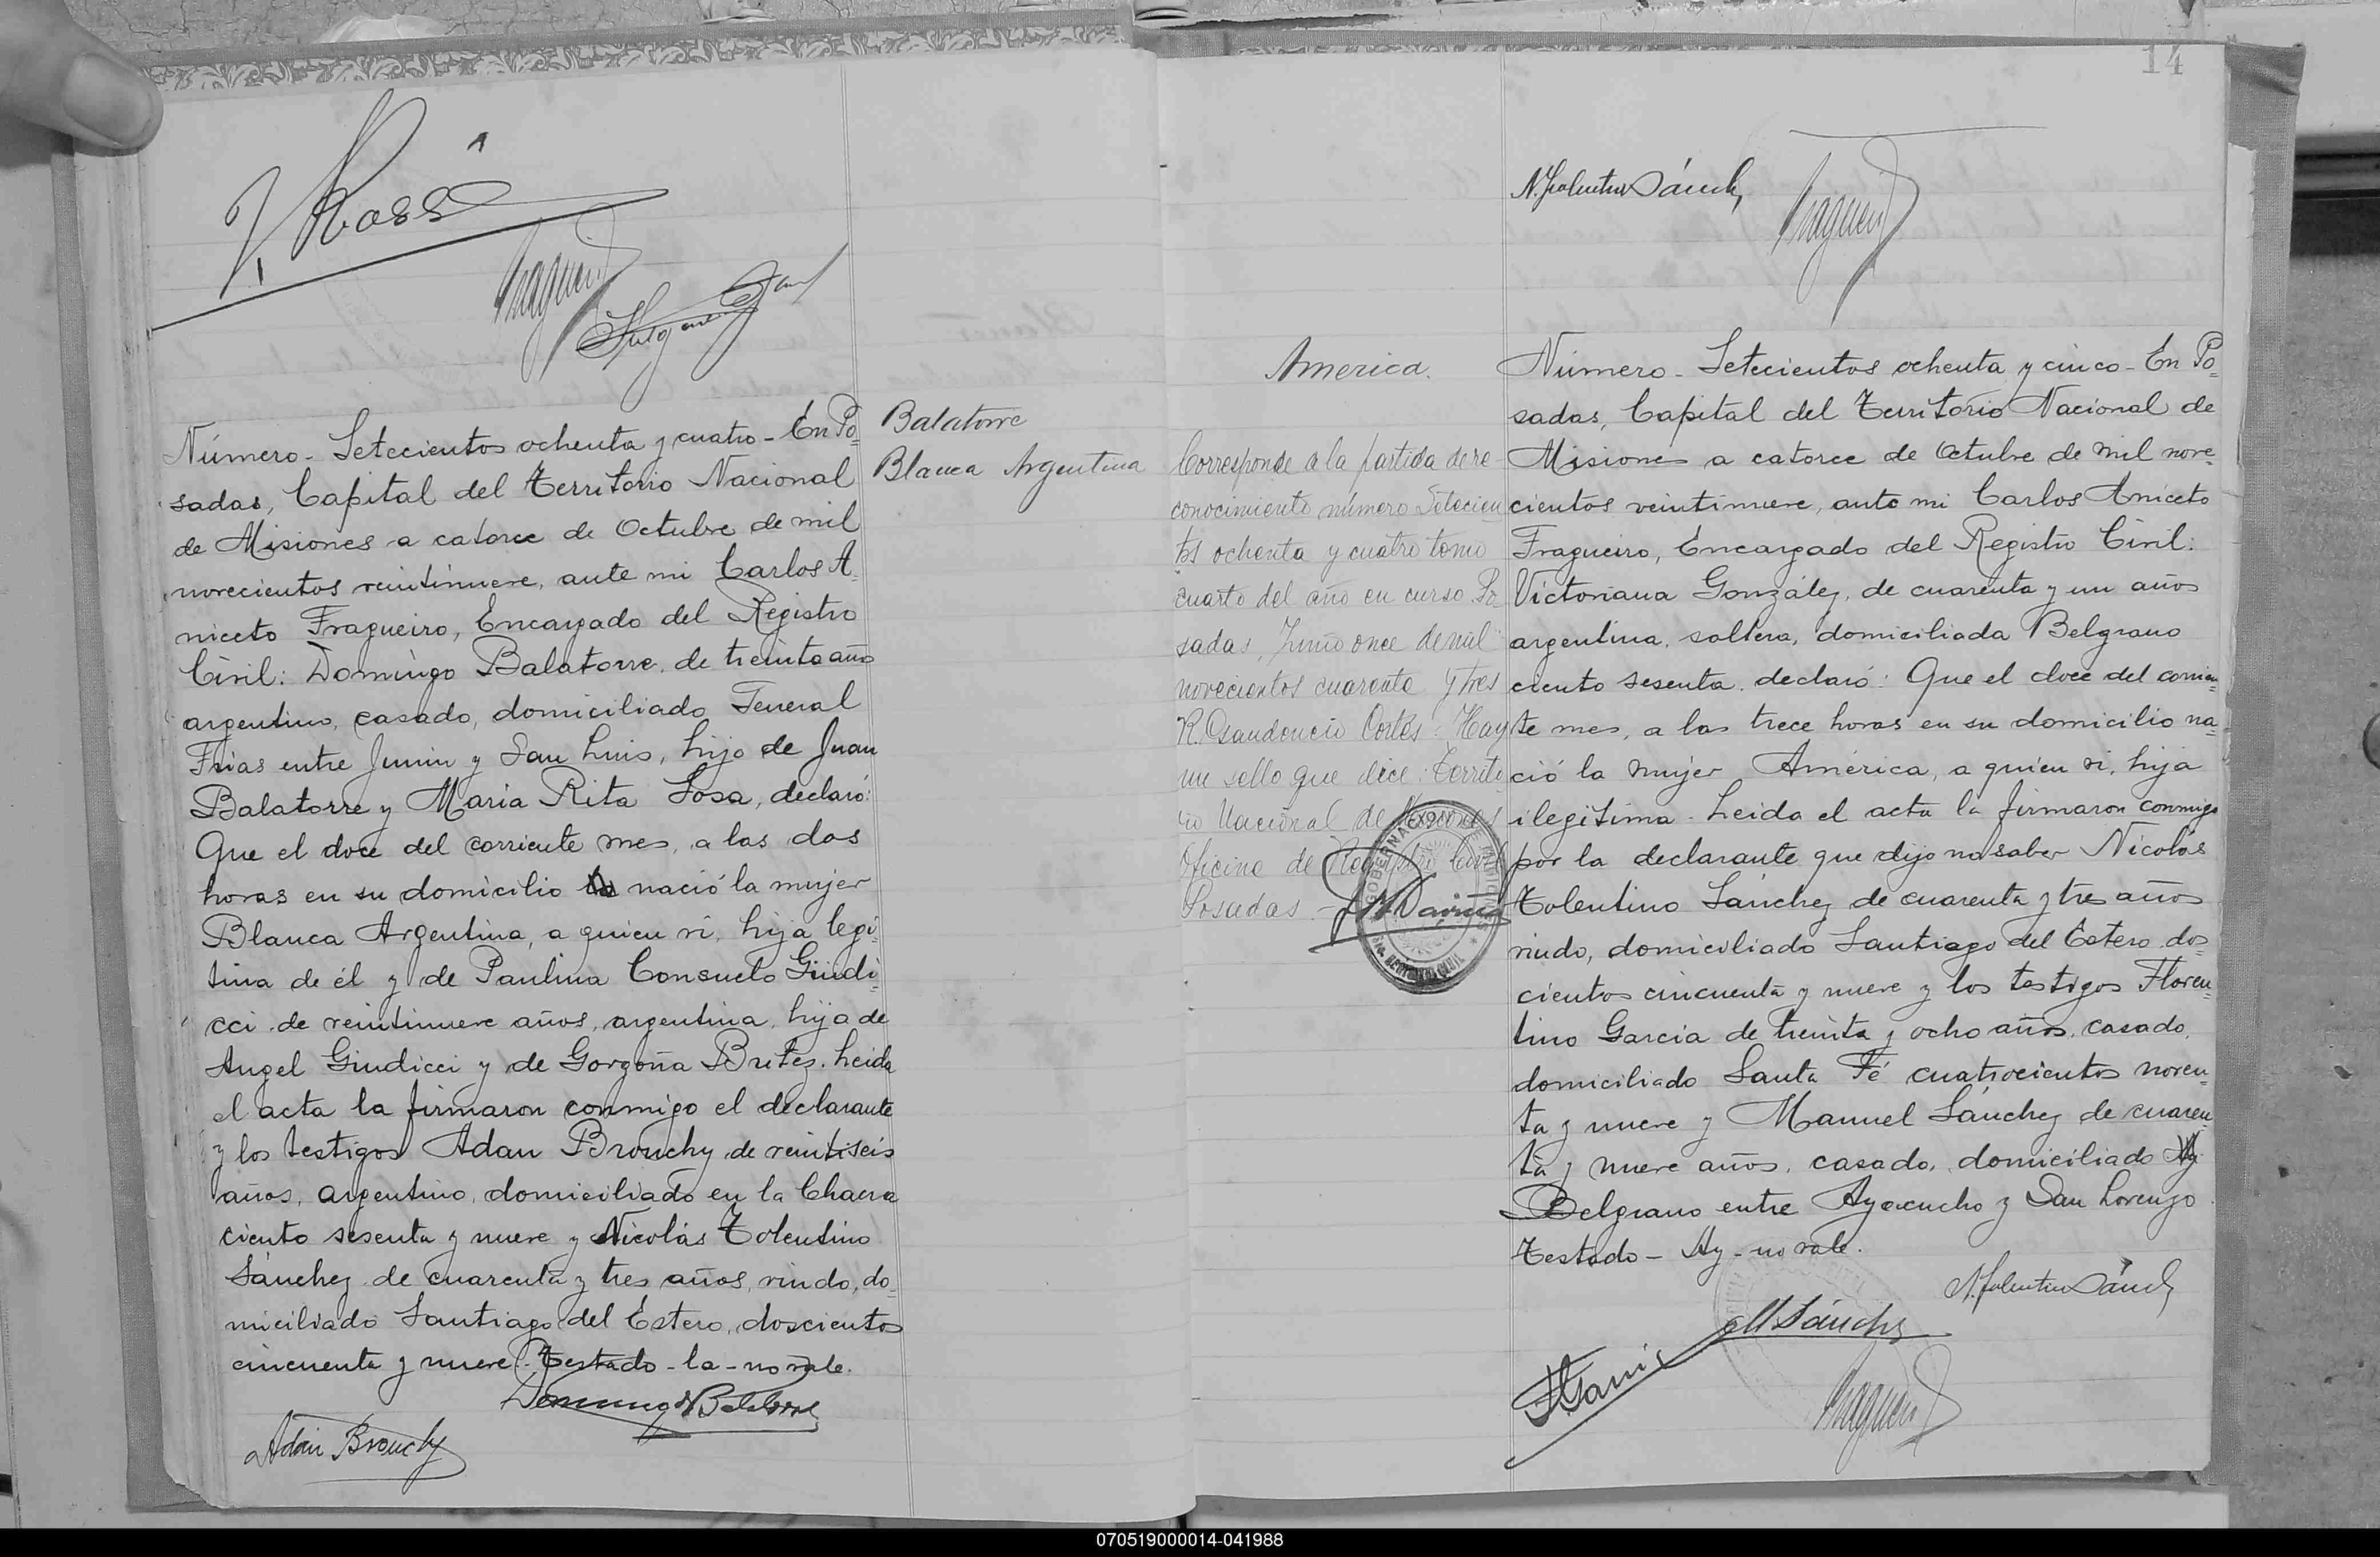 J. Rossi
Número - Setecientos ochenta y cuatro - En Po=
sadas, Capital del Territorio Nacional
de Misiones a catorce de Octubre de mil
novecientos veintinueve, ante mi Carlos A=
niceto Fragueiro, Encargado del Registro
Civil: Domingo Balatorre, de treinta años
argentino, casado, domiciliado General
Frias entre Junin y San Luis, hijo de Juan
Balatorre y María Rita Sosa, declaró:
Que el doce del corriente mes, a las dos
horas en su domicilio la nació la mujer
Blanca Argentina, a quien vi, hija legi=
tima de él y de Paulina Consuelo Giudi=
cci de veintinueve años, argentina, hija de
Angel Giudicci y de Gorgoña Britez. Leida
el acta la firmaron conmigo el declarante
y los testigos Adan Brouchy de veintiseis
años, argentino, domiciliado en la Chacra
ciento sesenta y nueve y Nicolás Tolentino
Sánchez de cuarenta y tres años, viudo, do=
miciliado Santiago del Estero, doscientos
cincuenta y nueve. Testado - la - no vale.
Domingo Balatorre
Adan Brouchy
Balatorre
Blanca Argentina
14
N. Tolentino Sánchez
America.
Corresponde a la partida de re
conocimiento número Setecien
tos ochenta y cuatro tomo
cuarto del año en curso. Po
sadas, Junio once de mil
novecientos cuarenta y tres
R. Osandoncio Cortés. Hay
un sello que dice: Territo
rio Nacional de Misiones
Oficina de Registro Civil
Posadas. -
Número - Setecientos ochenta y cinco - En Po=
sadas, Capital del Territorio Nacional de
Misiones a catorce de Octubre de mil nove=
cientos veintinueve, ante mi Carlos Aniceto
Fragueiro, Encargado del Registro Civil:
Victoriana González, de cuarenta y un años
argentina, soltera, domiciliada Belgrano
ciento sesenta, declaró: Que el doce del corrien=
te mes, a las trece horas en su domicilio na=
ció la mujer América, a quien vi, hija
ilegitima. Leida el acta la firmaron conmigo
por la declarante que dijo no saber Nicolás
Tolentino Sánchez de cuarenta y tres años
viudo, domiciliado Santiago del Estero dos=
cientos cincuenta y nueve y los testigos Floren=
tino Garcia de treinta y ocho años, casado,
domiciliado Santa Fé cuatrocientos noven=
ta y nueve y Manuel Sánchez de cuaren=
ta y nueve años, casado, domiciliado Ay
Belgrano entre Ayacucho y San Lorenzo
Testado - Ay - no vale.
N. Tolentino Sánchez
M Sánchez
F Garcia
070519000014-041988